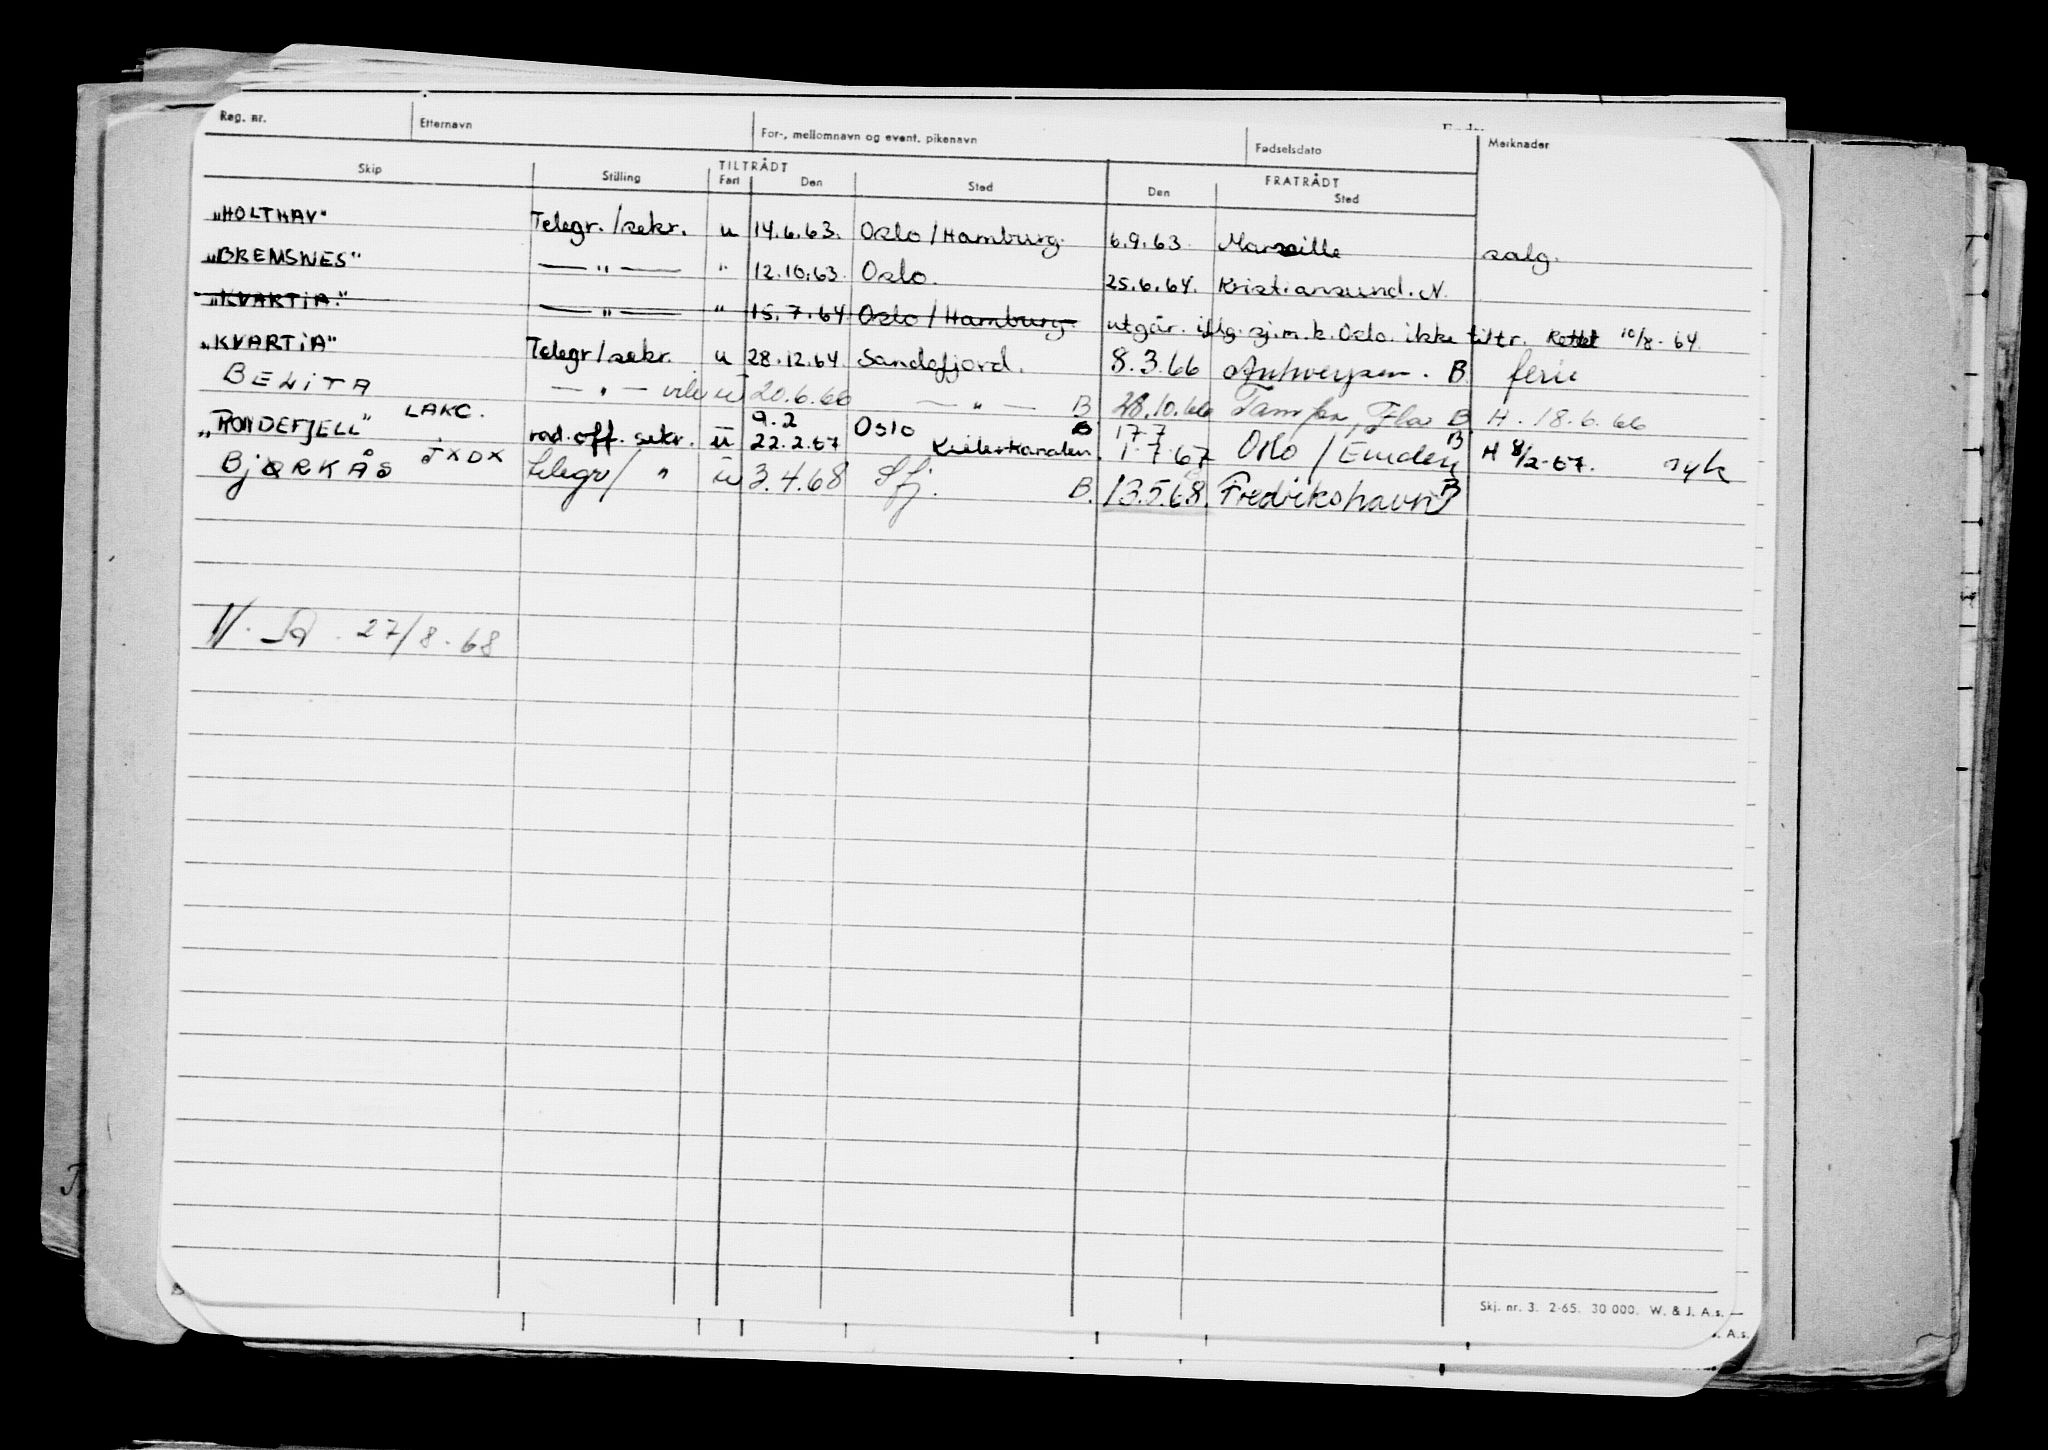 Reg. nr. Etternavn For-, mellomnavn og event. pikenavn Fødselsdato Merknader
Skip Stilling TILTRÅDT Fart Den Sted FRATRÅDT Den Sted
"HOLTHAV" Telegr./sekr. u 14.6.63. Oslo/Hamburg. 6.9.63. Marseille salg.
"BREMSNES" — " — " 12.10.63. Oslo. 25.6.64. Kristiansund. N.
"KVARTIA." — " — " 15.7.64 Oslo/Hamburg. utgår. iflg. sj.m.k. Oslo. ikke tiltr. Rettet 10/8-64.
"KVARTIA" Telegr/sekr. u 28.12.64. Sandefjord. 8.3.66 Antwerpen. B. ferie
BELITA — " — u 20.6.66 — " — B 28.10.66 Tampa, Fla B H. 18.6.66
"RONDEFJELL" LAKC. rad.off. sekr. u 9.2 22.2.67 Oslo B Kielerkanalen. 17.7 1.7.67 Oslo / Emden B H 8/2-67. syk
BJØRKÅS JXDX telegr/ " u 3.4.68 Sfj. B. 13.5.68. Fredrikshavn B
27/8.68
Skj. nr. 3. 2-65. 30 000. W. & J. A.s. —
A.s.